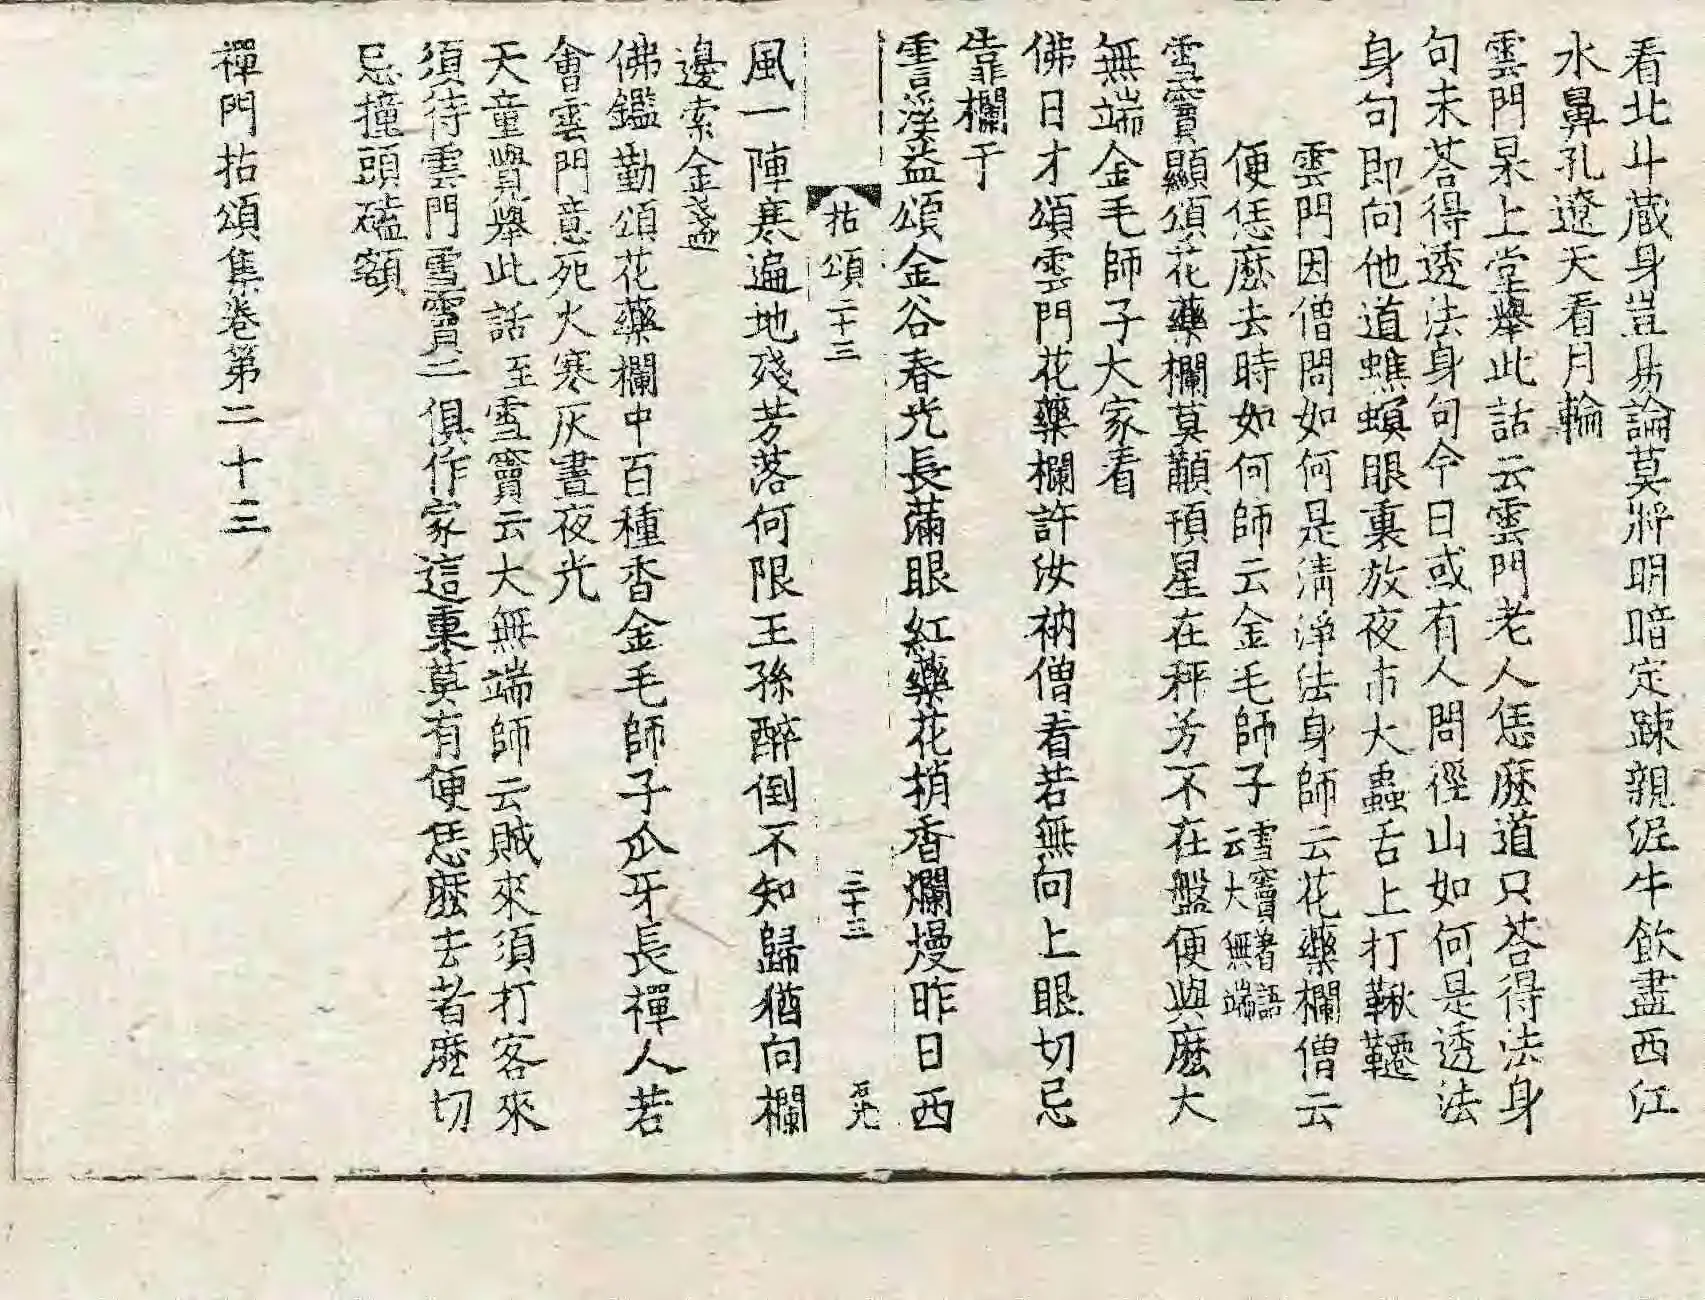 看北斗藏身豈易論莫將明暗定踈親泥牛飮盡西江
水鼻孔遼天看月輪
雲門杲上堂擧此話云雲門老人恁麽道只荅得法身
句未荅得透法身句今日或有人問徑山如何是透法
身句即向他道蟭螟眼裏放夜市大蟲舌上打鞦韆
雲門因僧問如何是淸淨法身師云花藥欄僧云
便恁麽去時如何師云金毛師子雪竇着語云大無端
雪竇顯頌花藥欄莫顢頇星在秤兮不在盤便與麽大
無端金毛師子大家看
佛日才頌雲門花藥欄許汝衲僧看若無向上眼切忌
靠欄干
雲溪益頌金谷春光長滿眼紅藥花梢香爛熳昨日西
拈頌二十三 二十三
風一陣寒遍地殘芳落何限王孫醉倒不知歸猶向欄
邊索金盞
佛鑑勤頌花藥欄中百種香金毛師子爪牙長禪人若
會雲門意死火寒灰晝夜光
天童覺擧此話至雪竇云大無端師云賊來須打客來
須待雲門雪竇二俱作家這裏莫有便恁麽去者麽切
忌撞頭磕額
禪門拈頌集卷第二十三